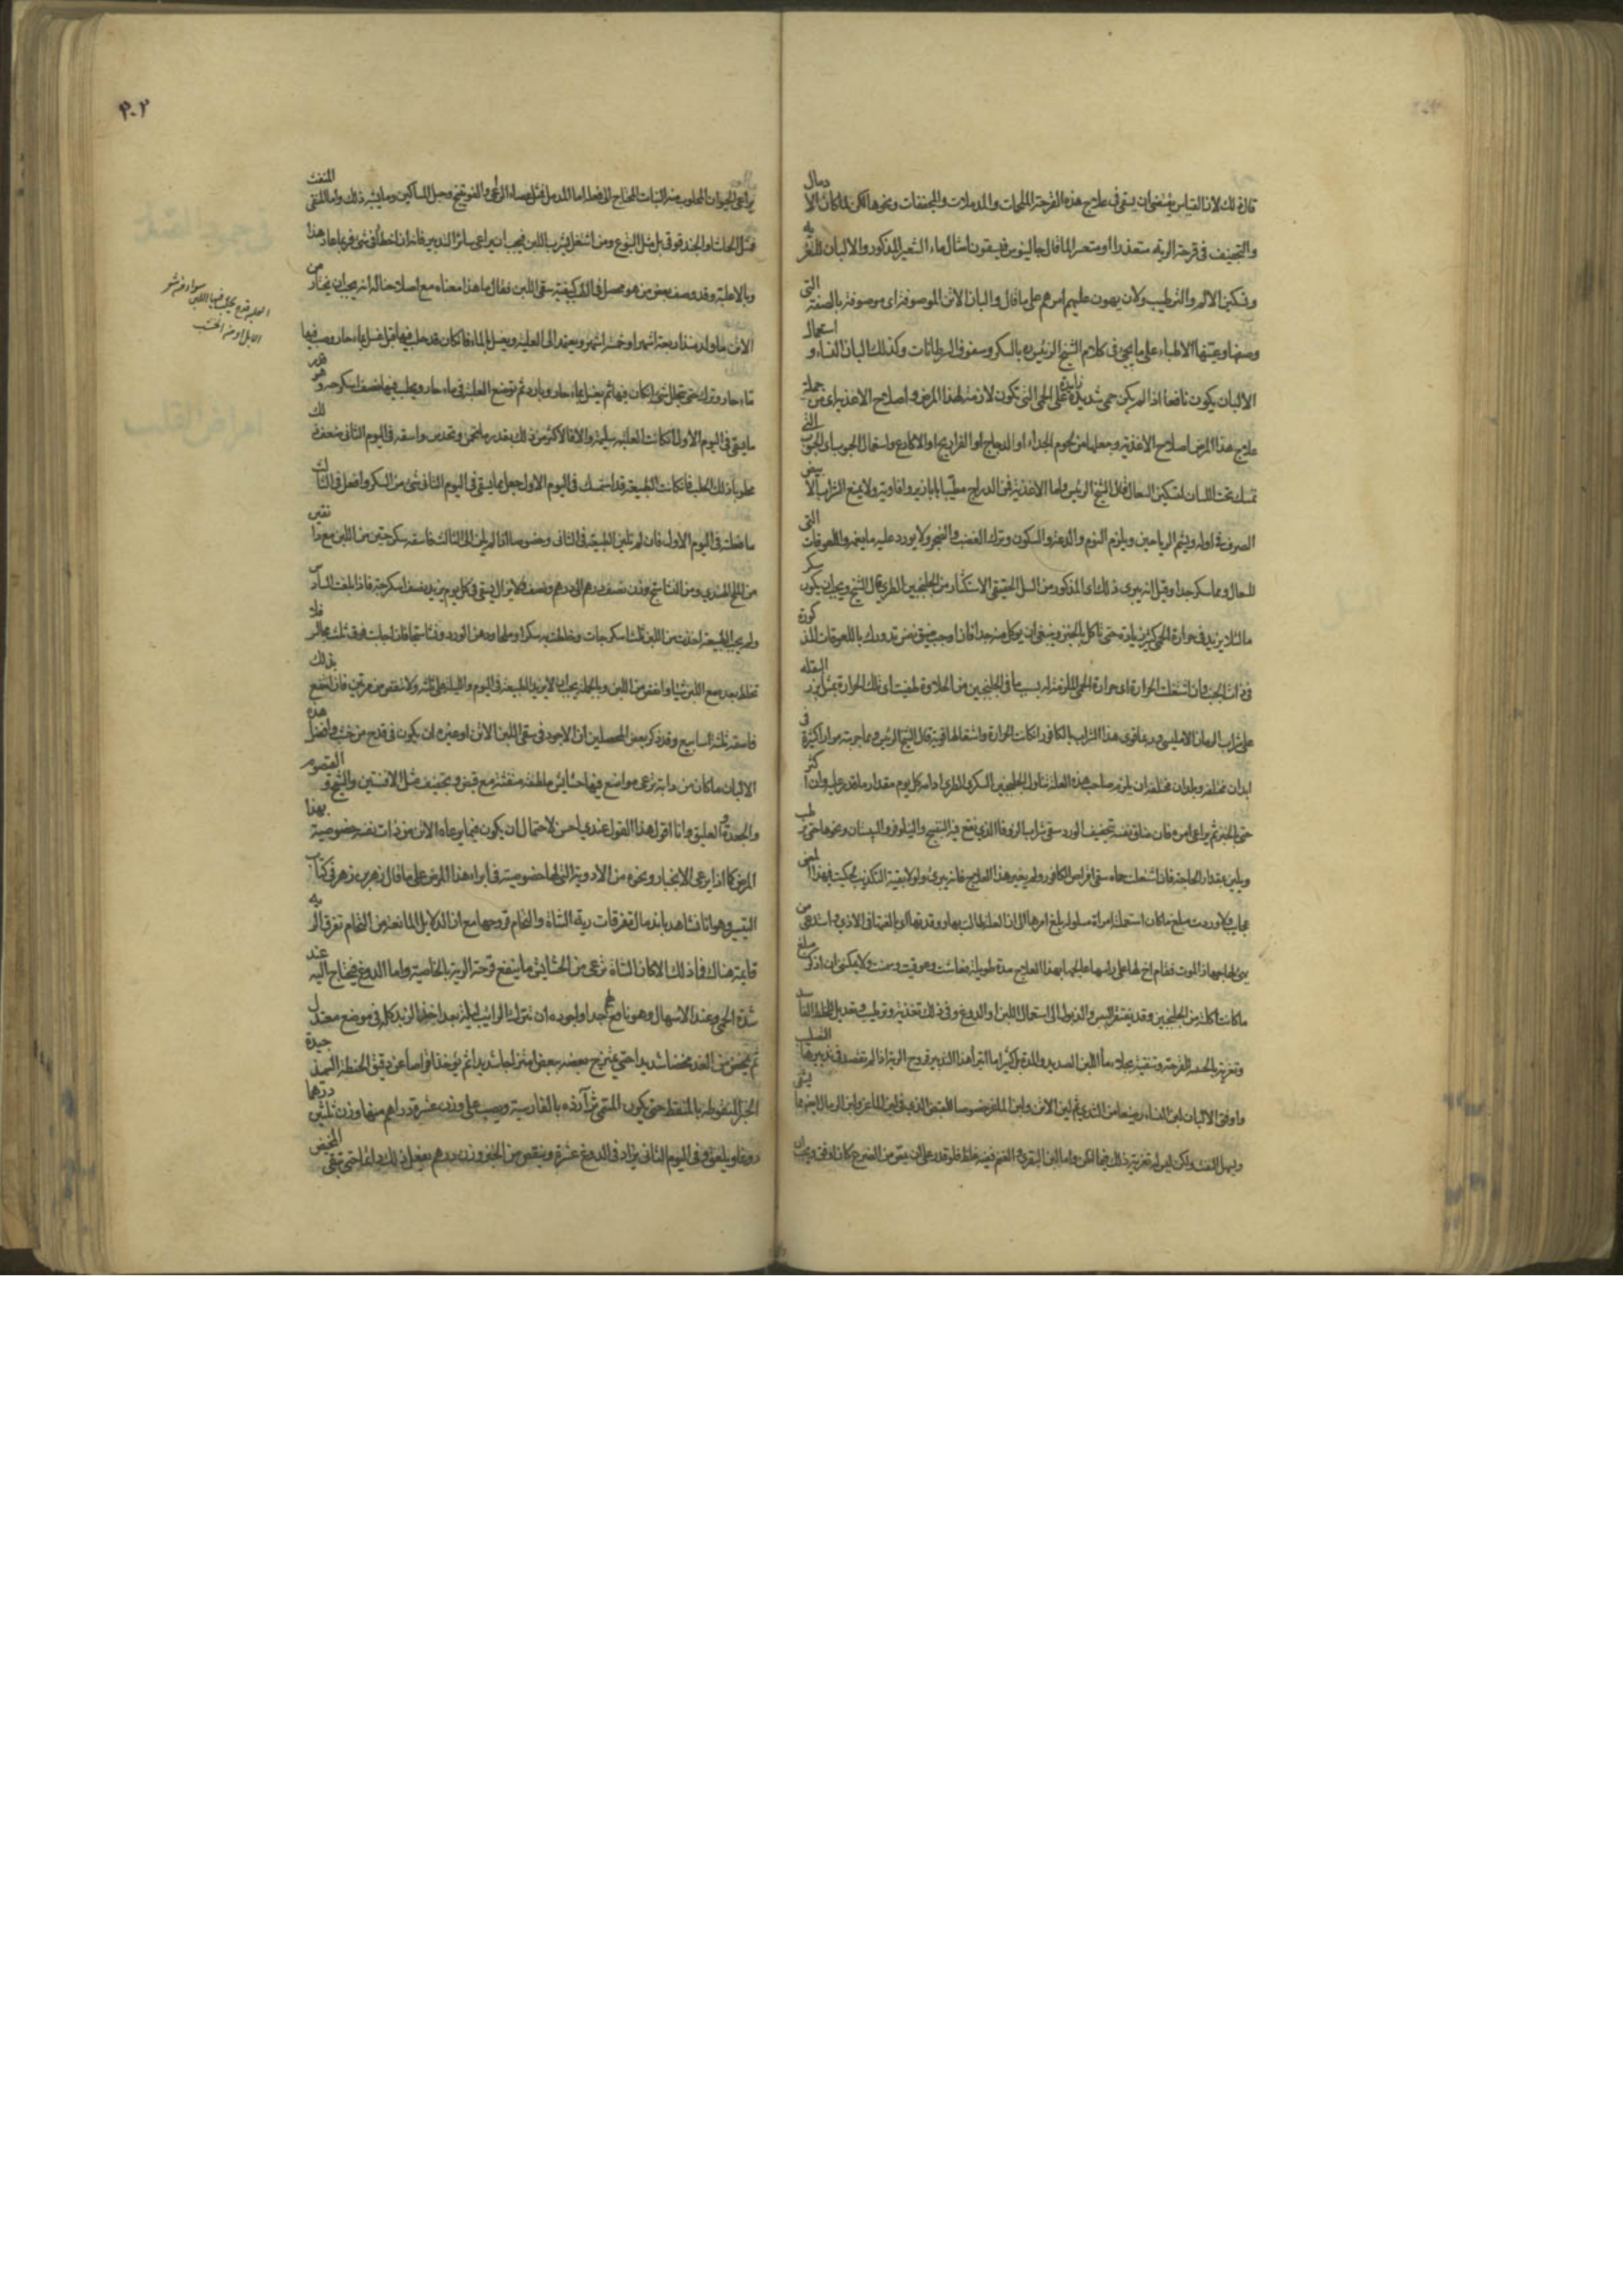 قال ذلك لان القياس يقتضى ان يسقى فى علاج هذه القرحة الملحمات والمدملات والمجففات ونحوها لكن لما كان الادمال
والتجفيف فى قرحة الرية متعذرا او متعسرا لما قال جالينوس فيسقون امثال ماء الشعير المذكور والالبان للتغرية
وتسكين الالم والترطيب ولان يهون عليهم امرهم على ما قال والبان الاتن الموصوفة اى موصوفة بالصفة التى
وصفها وعينها الاطباء على ما يجئ فى كلام الشيخ الرئيس بالسكر وسفوف السرطانات وكذلك البان النساء واستعمال
الالبان يكون نافعا اذا لم يكن حمى شديدة زايدة على الحمى التى تكون لازمة لهذا المرض واصلاح الاغذية اى من جملة
علاج هذا المرض اصلاح الاغذية وجعلها من لحوم الجداء او الدجاج او الفراريج او الاكارع واستعمال الحبوب اى الحبوب التى
تمسك تحت اللسان لتسكين السعال قال الشيخ الرئيس واما الاغذية فمن الدراج مطيبا بابازير وافاويه ولا يمنع الشراب الابيض
الصرف فى اوله ويشم الرياحين ويلزم النوم والدعة والسكون وترك الغضب والضجر ولا يورد عليه ما يغمه واللعوقات التى
للسعال ومما سكر جدا وقيل انه يبرئ ذلك اى المذكور من السل الحقيقى الاستكثار من الجلنجبين الطرى قال الشيخ ويجب ان يكون سكر
ما لئلا يزيد فى حرارة الحمى كثير زيادة حتى ياكل بالخبز وينبغى ان يوكل منه جدا فان اوجب ضيق نفس تدورك باللعوقات المذكورة
فى ذات الجنب وان اشتعلت الحرارة اى حرارة الحمى اللازمة له بسبب ما فى الجلنجبين من الحلاوة طفيت اى تلك الحرارة بمثل بزر البقلة
على شراب الرمان الامليسى وربما قوى هذا الشراب بالكافور ان كانت الحرارة واشتعالها قوية قال الشيخ الرئيس ومما جربته مرارا كثيرة فى
ابدان مختلفة وبلدان مختلفة ان يلزم صاحب هذه العلة تناول الجلنجبين السكرى الطرى ادامه كل يوم مقدار ما قدر عليه وان اكثر
حتى بالخبز ثم يراعى امره فان ضاق نفسه بتجفيف الورد سقى شراب الزوفا الذى نقع فيه البنفسج والنيلوفر والسپستان ونحوها حتى يرطب
ويلين بمقدار الحاجة فان اشتعلت حماه سقى اقراص الكافور ولم يغير هذا العلاج فانه يبرئ ولولا بقية التكذيب لحكيت فى هذا المعنى
عجايب ولاوردت مبلغ ما كان استعملته امراة مسلولة بلغ امرها الى ان العلة طالت بها وقد رقتها الى القهقا فى الاذى واستدعى من
يهئ لها جهاز الموت فقام اخ لها على راسها عالجها بهذا العلاج مدة طويلة فعاشت وعوفيت وسمنت ولا يمكننى ان اذكر مبلغ
ما كانت اكلته من الجلنجبين وقد يفتقر اليبس والذبول الى استعمال اللبن او الدوغ وفى ذلك تغذية وترطيب وتعديل للخلط الفاسد
وتغرية بالجبنية للقرحة وتنقية بجلاء ماء اللبن الصديد والمدة بل كثيرا ما ابرأ هذا التدبير قروح الرية اذا لم تقصد فى تدبيرها التصلب
واوفق الالبان لبن النساء رضعا من الثدى ثم لبن الاتن ولبن الماعز خصوصا للقبض الذى فى لبن الماعز ولبن الرماك ايضا مما ينقى
ويسهل النفث ولكن ليس له تغرية ذلك فيما اظن واما لبن البقر والغنم ففيه غلظ فلو قدر على ان يمص من الضرع كان اوفق ويجب ان
يراعى الحيوان المحلوب منه النبات المحتاج الى فعله اما المدمل فمثل عصا الراعى والقوينج وحبل المساكين وما يشبه ذلك واما المنقى المنفث
فمثل الحاشا والجندقوقى بل مثل اليتوع ومن اشتغل بشرب اللبن فيجب ان يراعى سائر التدبير فانه ان اخطا فى شئ فربما عاد هذا
وبالا عليه وقد وصف بعض من هو محصل فى الطب كيفية سقى اللبن فقال ما هذا معناه مع اصلاحنا له انه يجب ان يختار من
الاتن ما ولد منذ اربعة اشهر او خمسة اشهر ويعمد الى العلبة ويغسل بالماء فان كان قد حلب فيها قبل غسل بماء حار وصب فيها
ماء حار وترك حتى يتحلل شئ ان كان فيها ثم يغسل بماء حار وبارد ثم توضع العلبة فى ماء حار ويحلب فيها نصف سكرجة وهو قدر
ما يسقى فى اليوم الاول ان كانت العلبة سليمة والا فالاكثر من ذلك بقدر ما تخمن وتحدس واسقه فى اليوم الثانى ضعف ذلك
محلوبا ذلك الحلب فان كانت الطبيعة قد استمسكت فى اليوم الاول جعل لما يسقى فى اليوم الثانى شئ من السكر وافعل فى الثالث
ما فعلته فى اليوم الاول فان لم تلين الطبيعة فى الثانى وخصوصا اذا لم يلن الى الثالث فاسقه سكرجتين من اللبن مع دانقين
من الملح الهندى ومن النشاستج وزن نصف درهم الى درهم ونصف فلا يزال يسقى فى كل يوم يزيد نصف سكرجة فاذا بلغت السادس
ولم يجب الطبيعة اخذت من اللبن ثلث سكرجات وخلطت به سكرا وملحا ودهن الورد ونشاستجا فان اجابت فوق ثلث مجالس فلا
تخلط بعد مع اللبن شيئا وانقص من اللبن وبالجملة يجب ان لا يزيد الطبيعة فى اليوم والليلة على ثلثة ولا تنقص من مرتين فان انتفع بذلك
فاسقه ثلثة اسابيع وقد ذكر بعض المحصلين ان الاجود فى سقى اللبن الاتن او غيره ان يكون فى قدح من خشب وافضل هذه
الالبان ما كان من دابة ترعى مواضع فيها حشايش ملطفة منقية مع قبض وتجفيف مثل الافسنتين والشيح والقيصوم
والجعدة والعليق وانا اقول هذا القول عندى احسن لاحتمال ان يكون فيما يرعاه الاتن من ذات نفسه خصوصية بهذا
المرض كما اذا يرعى الانجبار ونحوه من الادوية التى لها خصوصية فى ابراء هذا المرض على ما قال زهر بن زهر فى كتاب
التيسير وهو انا نشاهد باندمال تفرقات رية الشاة والتحام قروحها مع ان الدلايل المانعة من التحام تفرق الرية
قايمة هناك فاذ ذلك الا كان الشاة ترعى من الحشايش ما ينفع قرحة الرية بالخاصية واما الدوغ فيحتاج اليه عند
شدة الحمى وعند الاسهال وهو نافع لهم جدا واجوده ان تترك الرايب ليلة بعد اخذ الزبد كله فى موضع معتدل
ثم يمخض من الغد مخضا شديدا حتى يمتزج بعضه ببعض امتزاجا شديدا ثم يؤخذ اقراصا عن دقيق الحنطة السميذ جيدة
الخبز المنقوطة بالمنقط حتى يكون المسمى ثرا آرذه بالفارسية ويصب على وزن عشرة دراهم منها وزن ثلثين درهما
دوغا ويلعق وفى اليوم الثانى يزاد فى الدوغ عشرة وينقص من الخبز وزن درهم يفعل ذلك دايما حتى تبقى المخيض
العلبة قدح يحلب فيها اللبن سواء من
الابل او من الخشب
٣٠٢